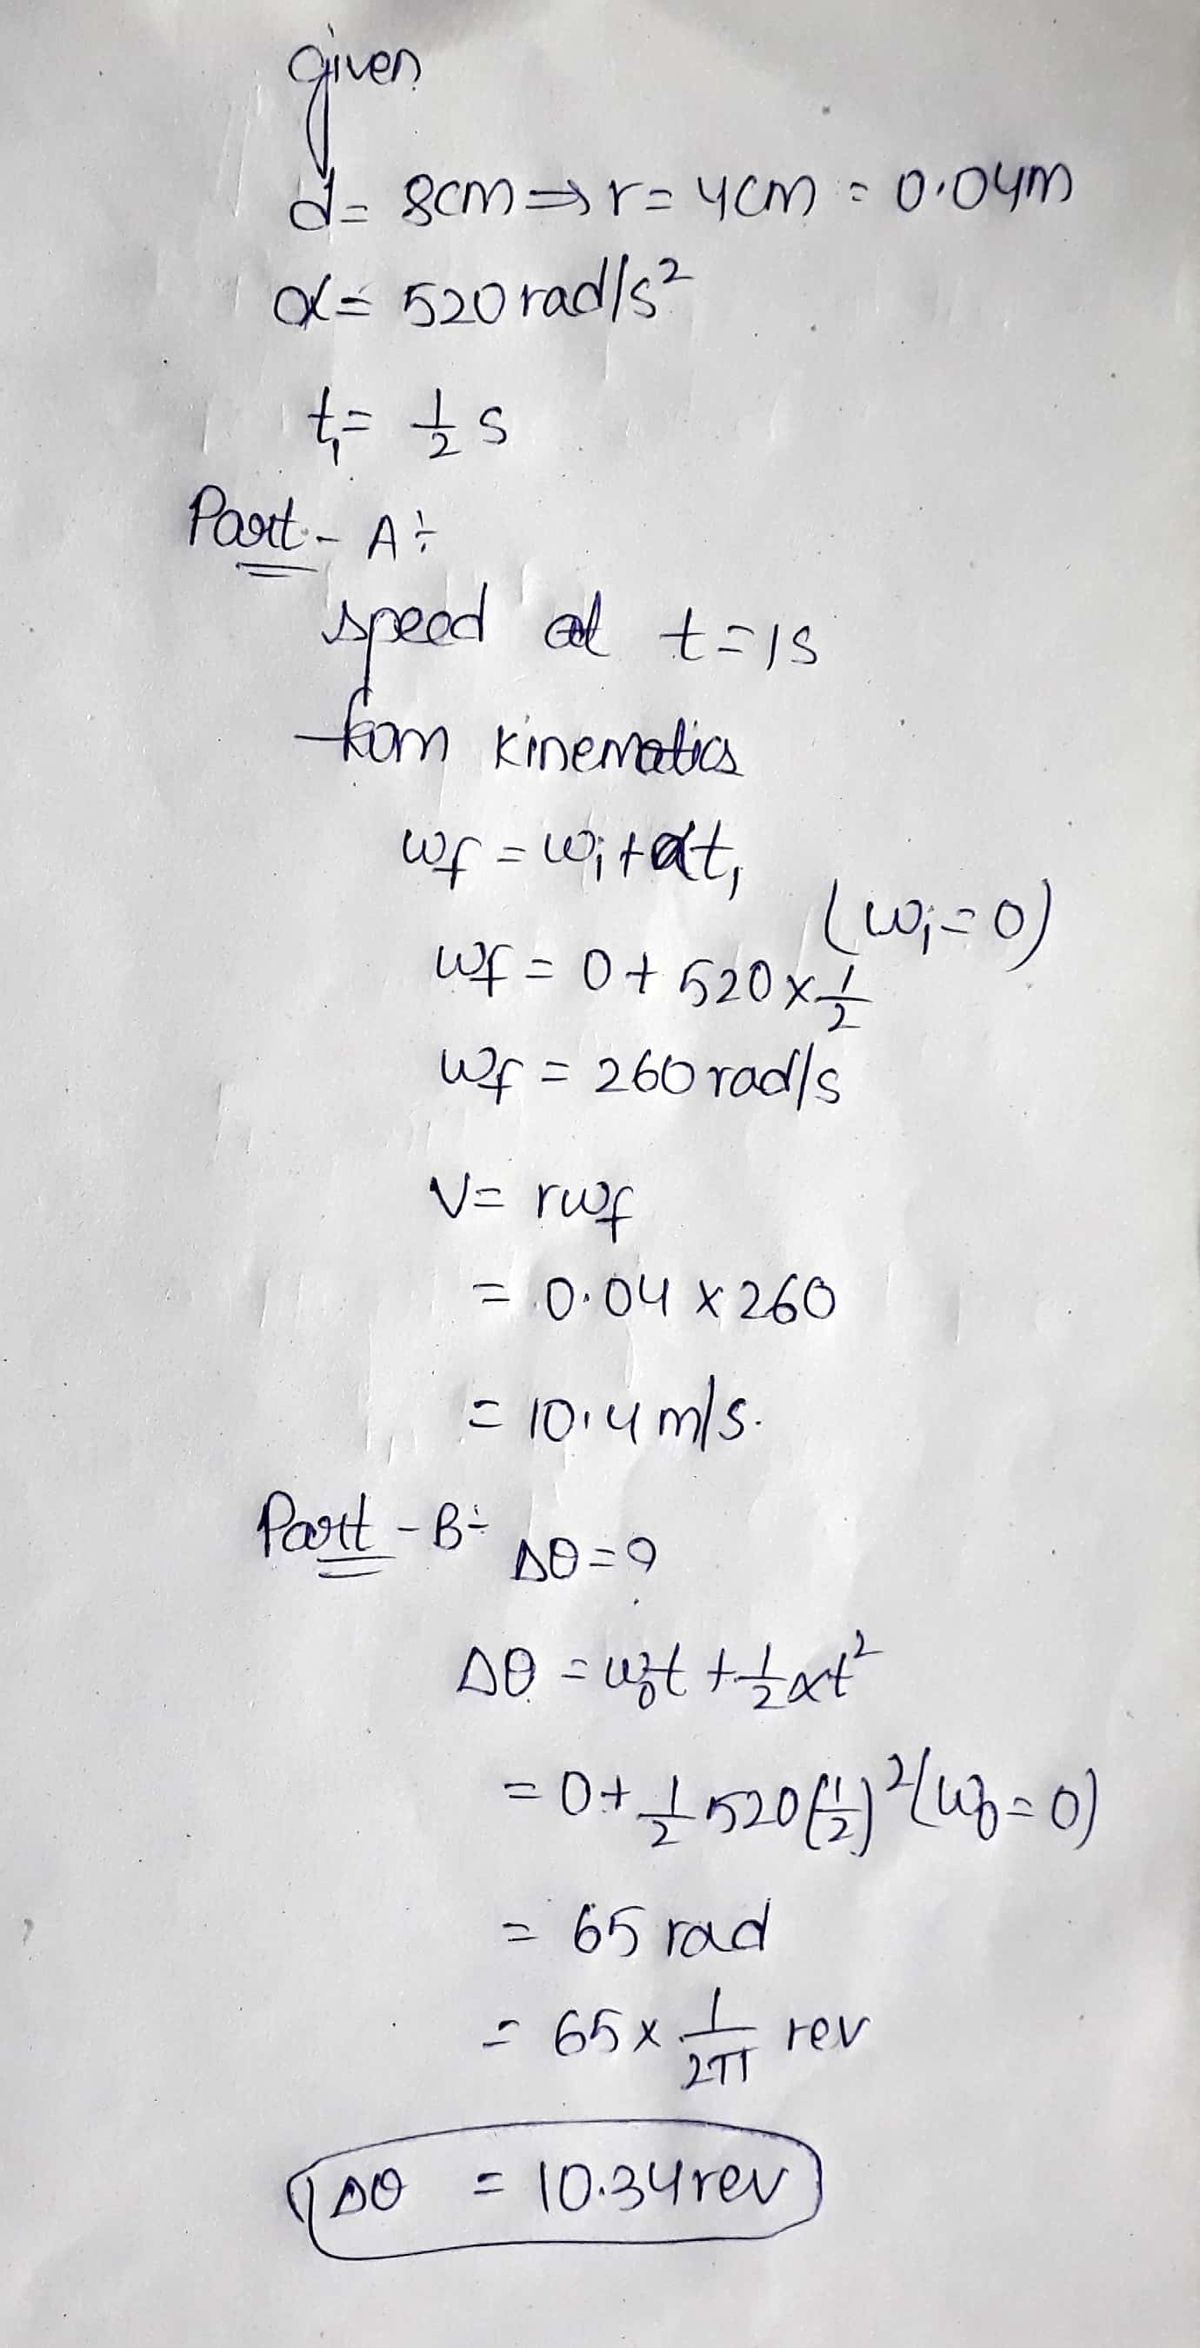 given
d = 8cm ⇒ r = 4cm = 0.04m
α = 520 rad/s²
t₁ = 1/2 s
Part - A ÷
speed at t = 1s
from kinematics
ωf = ωi + αt₁
(ωi = 0)
ωf = 0 + 520 × 1/2
ωf = 260 rad/s
V = rωf
= 0.04 × 260
= 10.4 m/s.
Part - B ÷ Δθ = ?
Δθ = ω₀t + 1/2 αt²
= 0 + 1/2 520 (1/2)² (ω₀ = 0)
= 65 rad
= 65 × 1/2π rev
Δθ = 10.34 rev